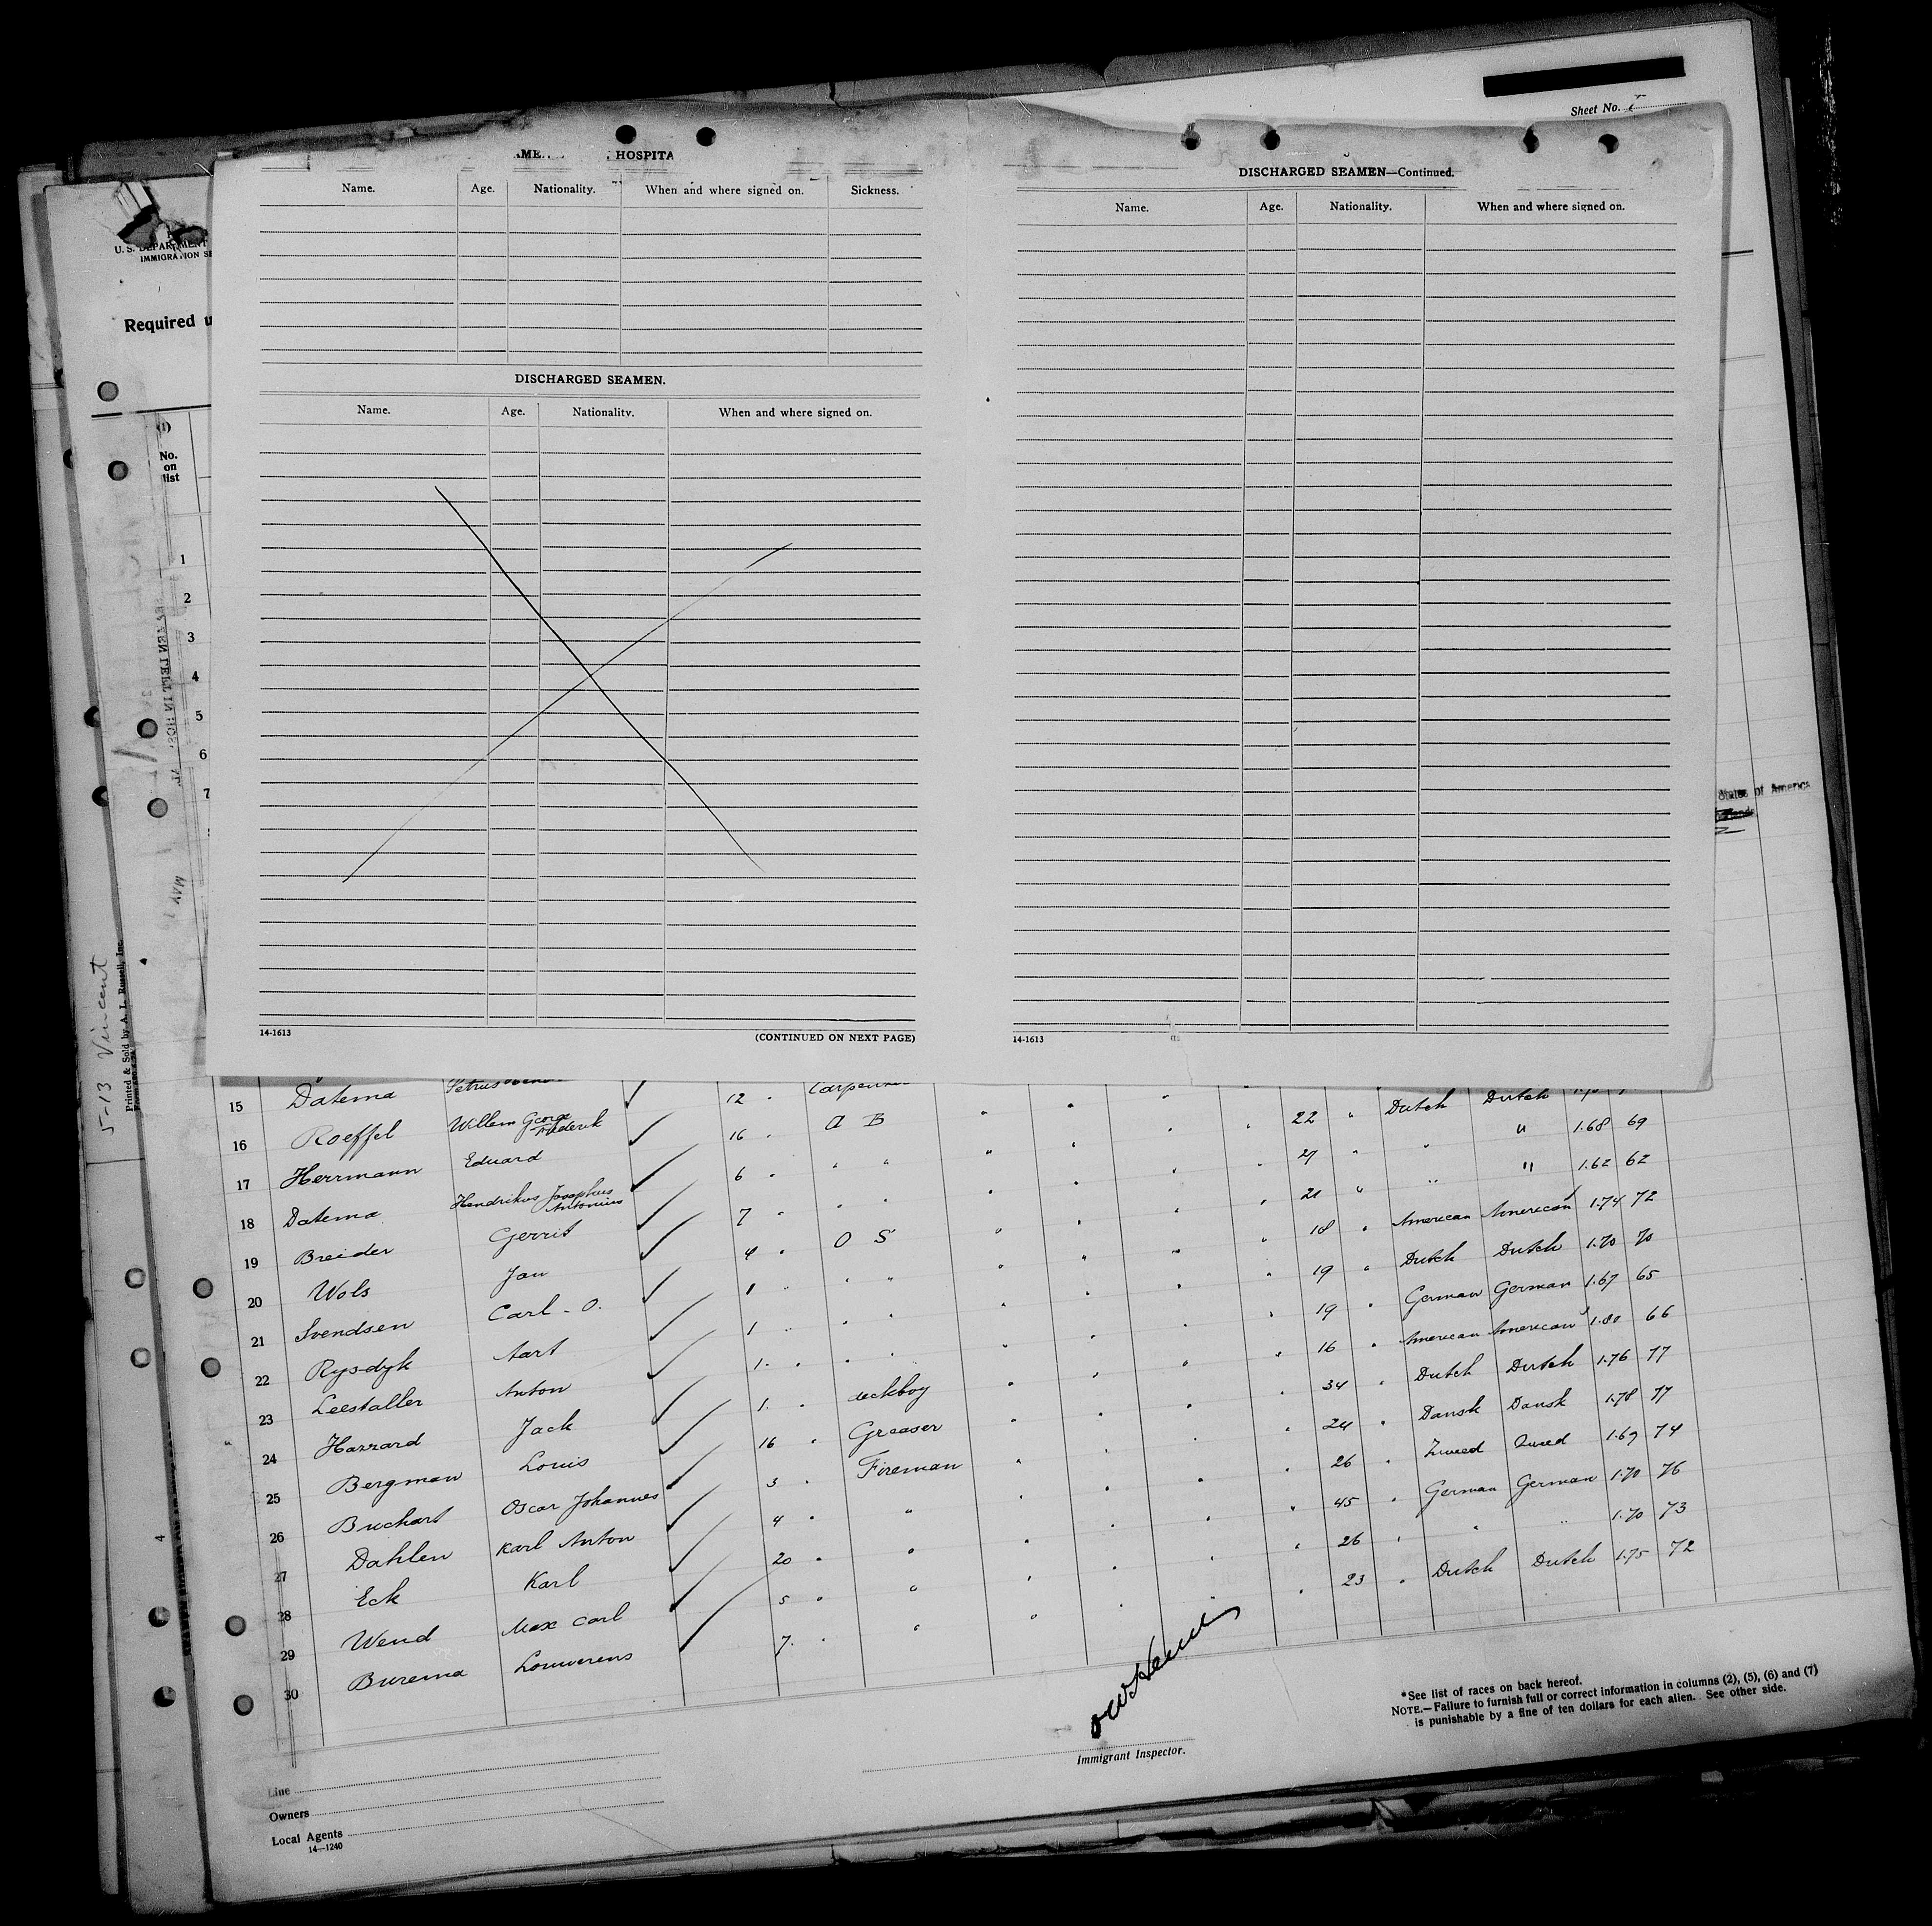 Sheet No.
HOSPITA
Name. Age. Nationality. When and where signed on. Sickness.
DISCHARGED SEAMEN.
Name. Age. Nationality. When and where signed on.
14-1613 (CONTINUED ON NEXT PAGE)
DISCHARGED SEAMEN—Continued.
Name. Age. Nationality. When and where signed on.
14-1613
U. S. DEPARTMENT
IMMIGRATION SE
Required u
(1)
No.
on
list
1
2
3
4
5
6
7
States of America
5-13 Vincent
Printed & Sold by A. L. Russell, Inc.
4
15 Datema Petrus
16 Roeffel Willem George Frederik 12 " Carpenter
17 Herrmann Eduard 16 " A B
18 Datema Hendrikus Josephus Antonius 6 " " " 22 " Dutch Dutch
19 Breider Gerrit 7 " " " 27 " " " 1.68 69
20 Wols Jan 4 " O S 21 " " " 1.62 62
21 Svendsen Carl - O. 1 " " " 18 " American American 1.74 72
22 Rysdyk Aart 1 " " " 19 " Dutch Dutch 1.70 70
23 Leestaller Anton 1 " " " 19 " German German 1.67 65
24 Harrard Jack 1 " deckboy 16 " American American 1.80 66
25 Bergman Louis 16 " Greaser 34 " Dutch Dutch 1.76 77
26 Buchart Oscar Johannes 3 " Fireman 24 " Dansk Dansk 1.78 77
27 Dahlen Karl Anton 4 " " 26 " Zweed Zweed 1.69 74
28 Eck Karl 20 " " 45 " German German 1.70 76
29 Wend Max Carl 5 " " 26 " " " 1.70 73
30 Burema Louwerens 7 " " 23 " Dutch Dutch 1.75 72
Immigrant Inspector.
*See list of races on back hereof.
NOTE.—Failure to furnish full or correct information in columns (2), (5), (6) and (7)
is punishable by a fine of ten dollars for each alien. See other side.
Line
Owners
Local Agents
14—1240